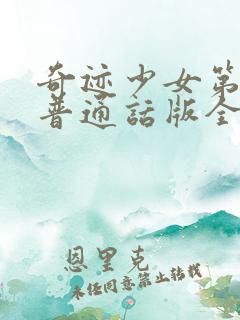 奇迹少女第
普通話版全
恩里克
未经同意禁止转载